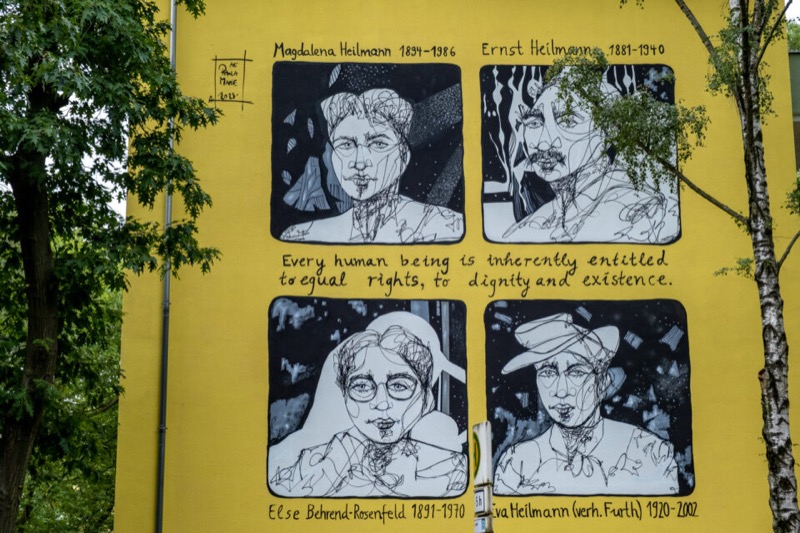 Magdalena Heilmann 1894-1986
Ernst Heilmann 1881-1940
Every human being is inherently entitled
to equal rights, to dignity and existence.
Else Behrend-Rosenfeld 1891-1970
Eva Heilmann (verh. Furth) 1920-2002